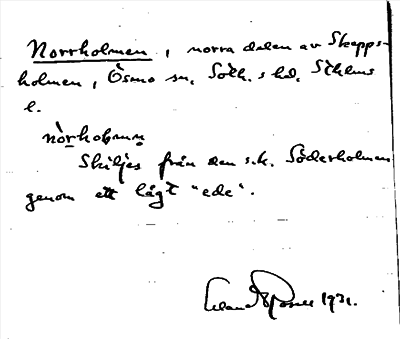 Norrholmen, norra delen av Skepps-
holmen, Ösmo sn, Soth. s hd, Sthlms
l.
nòrhoḷmᶇ
Skiljes från den s.k. Söderholmen
genom ett lågt "ede".
Erland Rosell 1931.